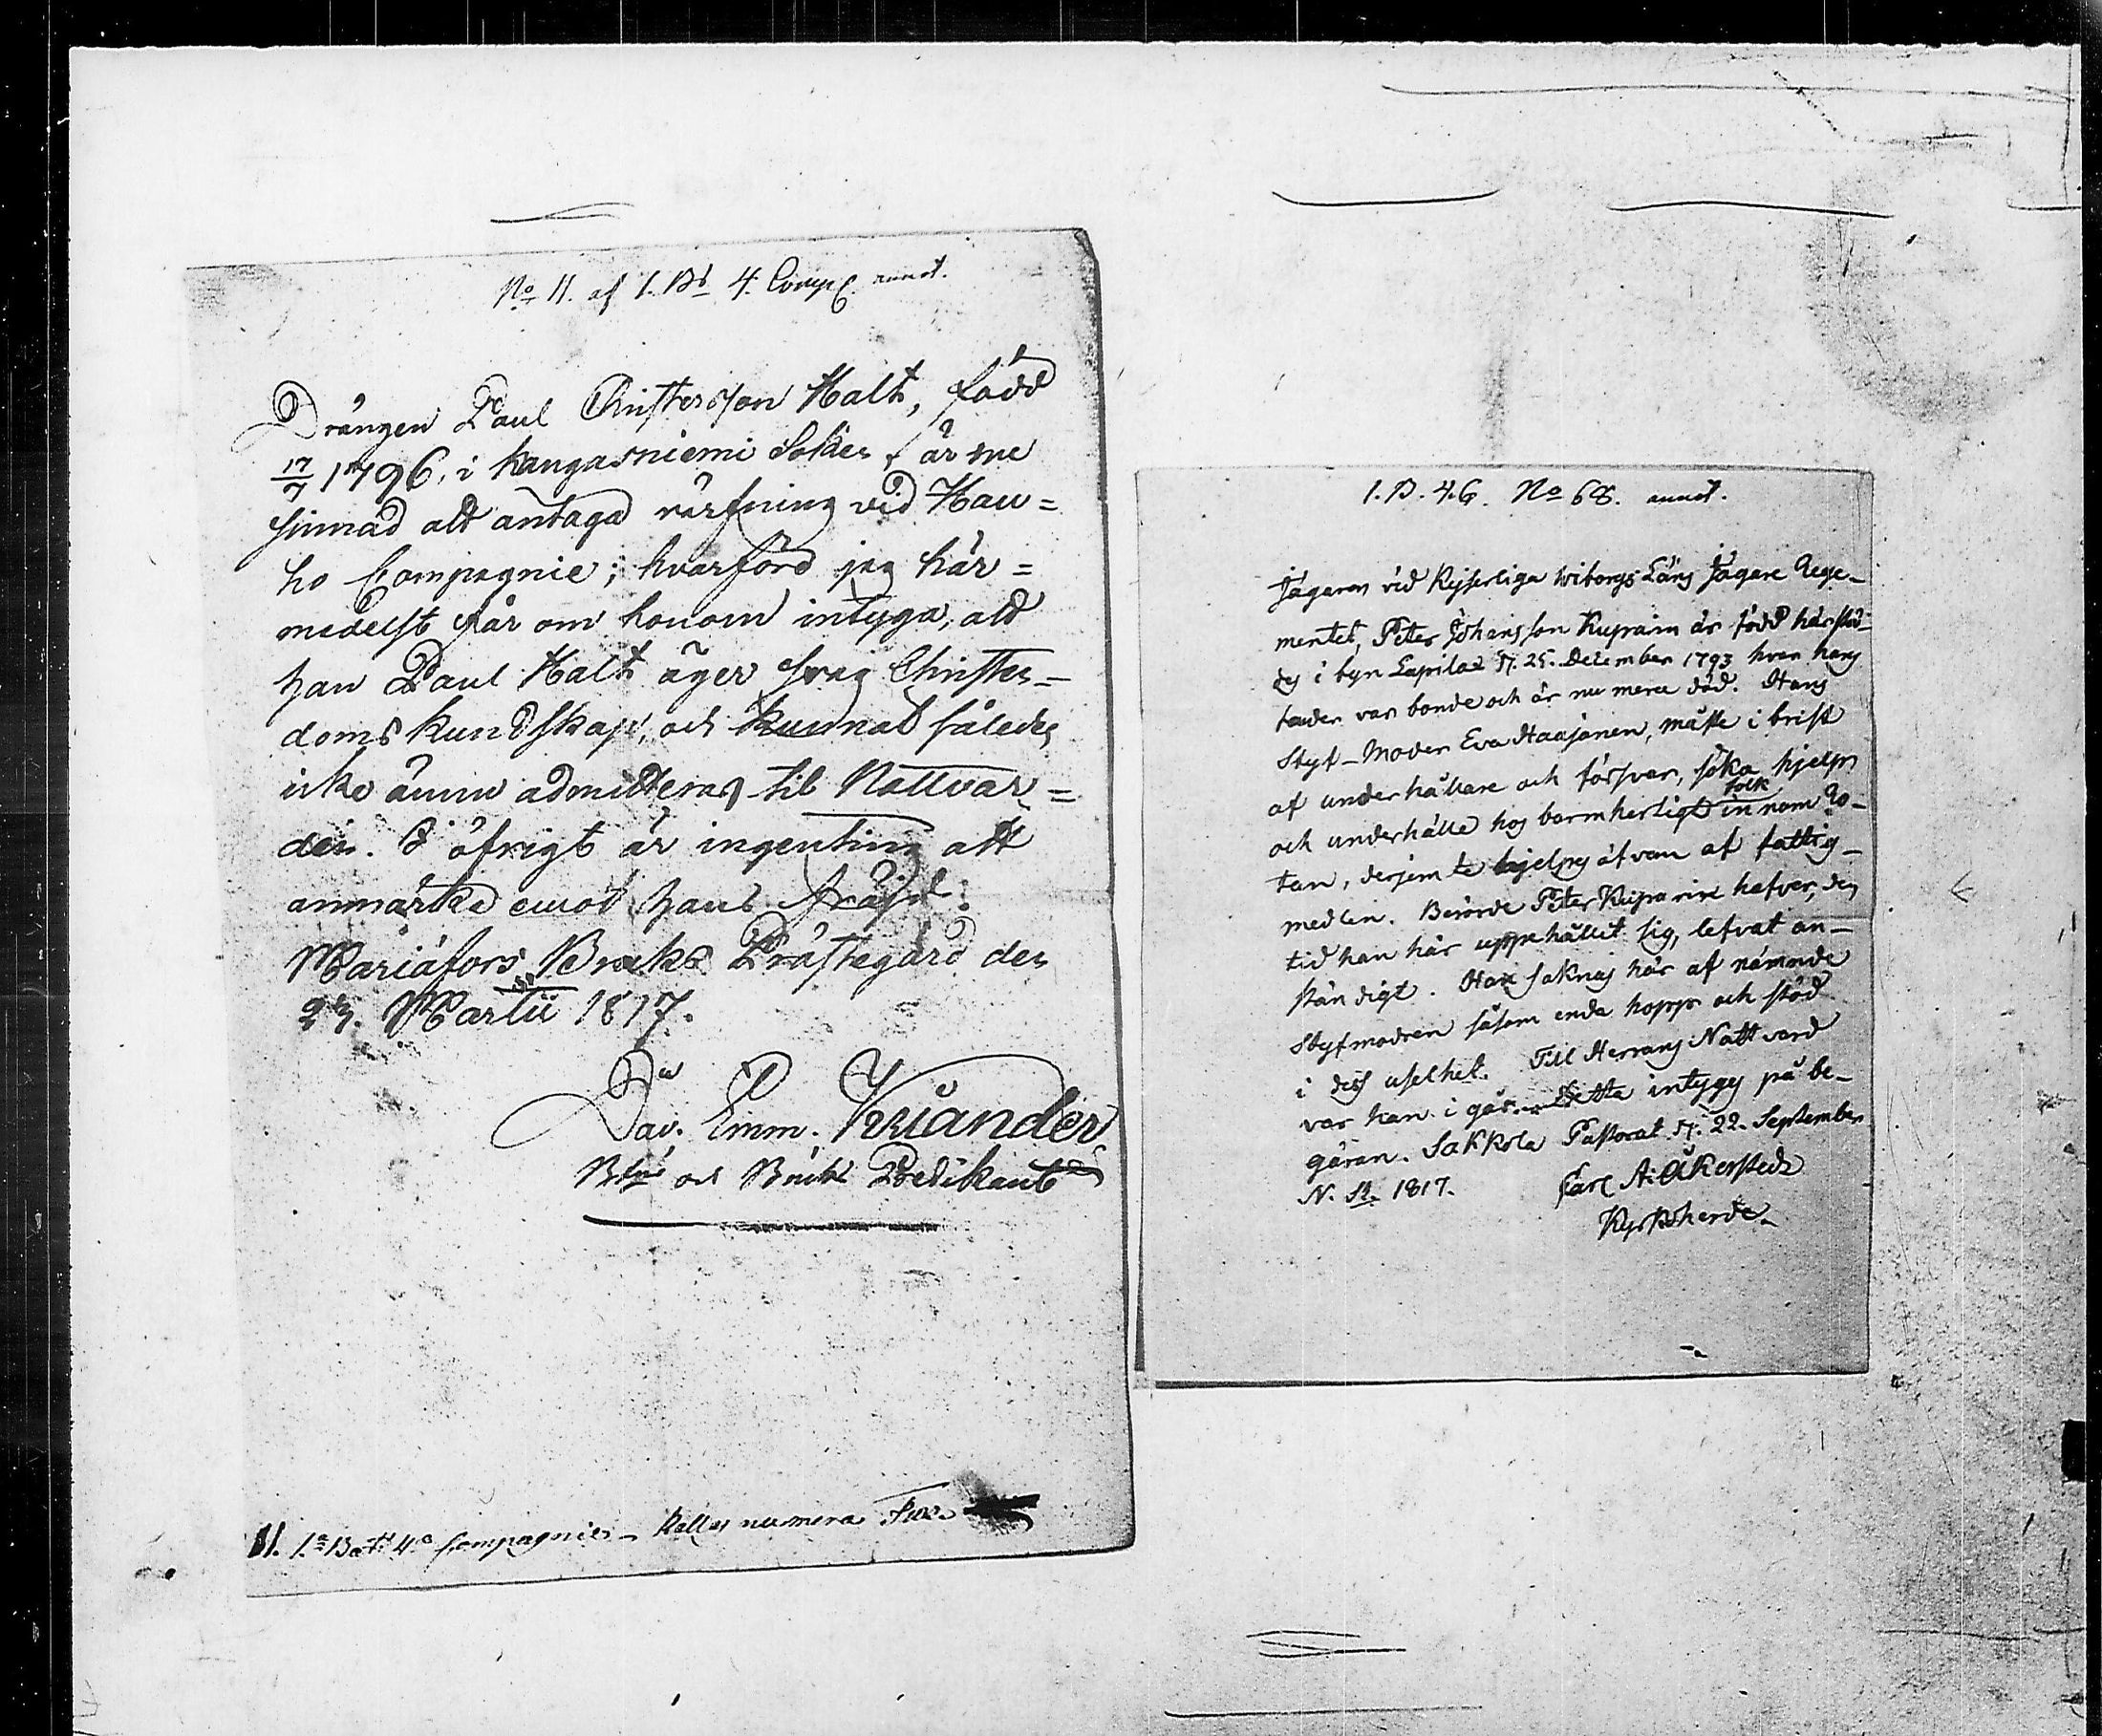 No 11. af 1. Bt 4. Comp. annot.
Drängen Paul Christersson Halt, född
17/7 1796, i Kangasniemi Soken, är me
sinnad att antaga värfning vid Hau=
ho Compagnie; hvarföre jag här=
medelst får om honom intyga, att
han Paul Halt äger svag Christen-
doms kundskap, och kunnat således
icke ännu admitteras til Nattvar=
den. I öfrigt är ingenting att
anmärka emot hans fräjd.
Mariæfors Bruks Prästegård den
23. Martii 1817.
Dav. Emm. Kriander
och Bruks Predikant
11. 1a Bat. 4a Compagnie - Kallas numera
1. B. 4. C. No 68. annot.
Jägaren vid Kejserliga Wiborgs Läns Jägare Rege-
mentet, Peter Johansson Kuparin är född härstä-
des i byn Lapilax d. 25. December 1793 hvar hans
fader var bonde och är nu mera död. Hans
Styf-Moder Eva Haajanen, måste i brist
af underhållare och försvar, söka hjelp
och underhålle hos barmhertigt folk innom Ro-
tan, derjemte hjelpes äfven af fattig-
medlen. Berörde Peter Kuparin hafver, den
tid han här uppehållit sig, lefvat an-
ständigt. Han saknas här af nämnde
Styfmodren såsom enda hopp och stöd
i dess uselhet. Till Herrans Nattvard
var han i går. Detta intyges på be-
gäran. Sakkola Pastorat d. 22. September
N. St. 1817. Carl A. Åkerstedt
Kyrkoherde